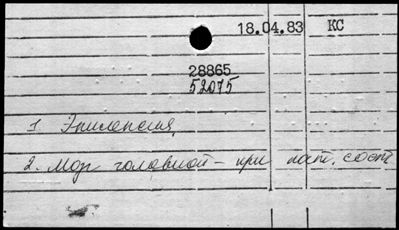 18.04.83 КС
28865
52075
1. Эпилепсия,
2. Мозг головной – при пат. сост.